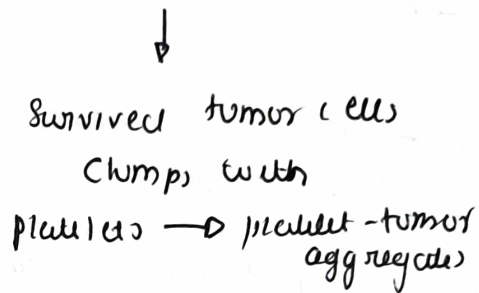 ↓
Survived tumor cells
Clumps with
platelets → platelet-tumor
aggregates